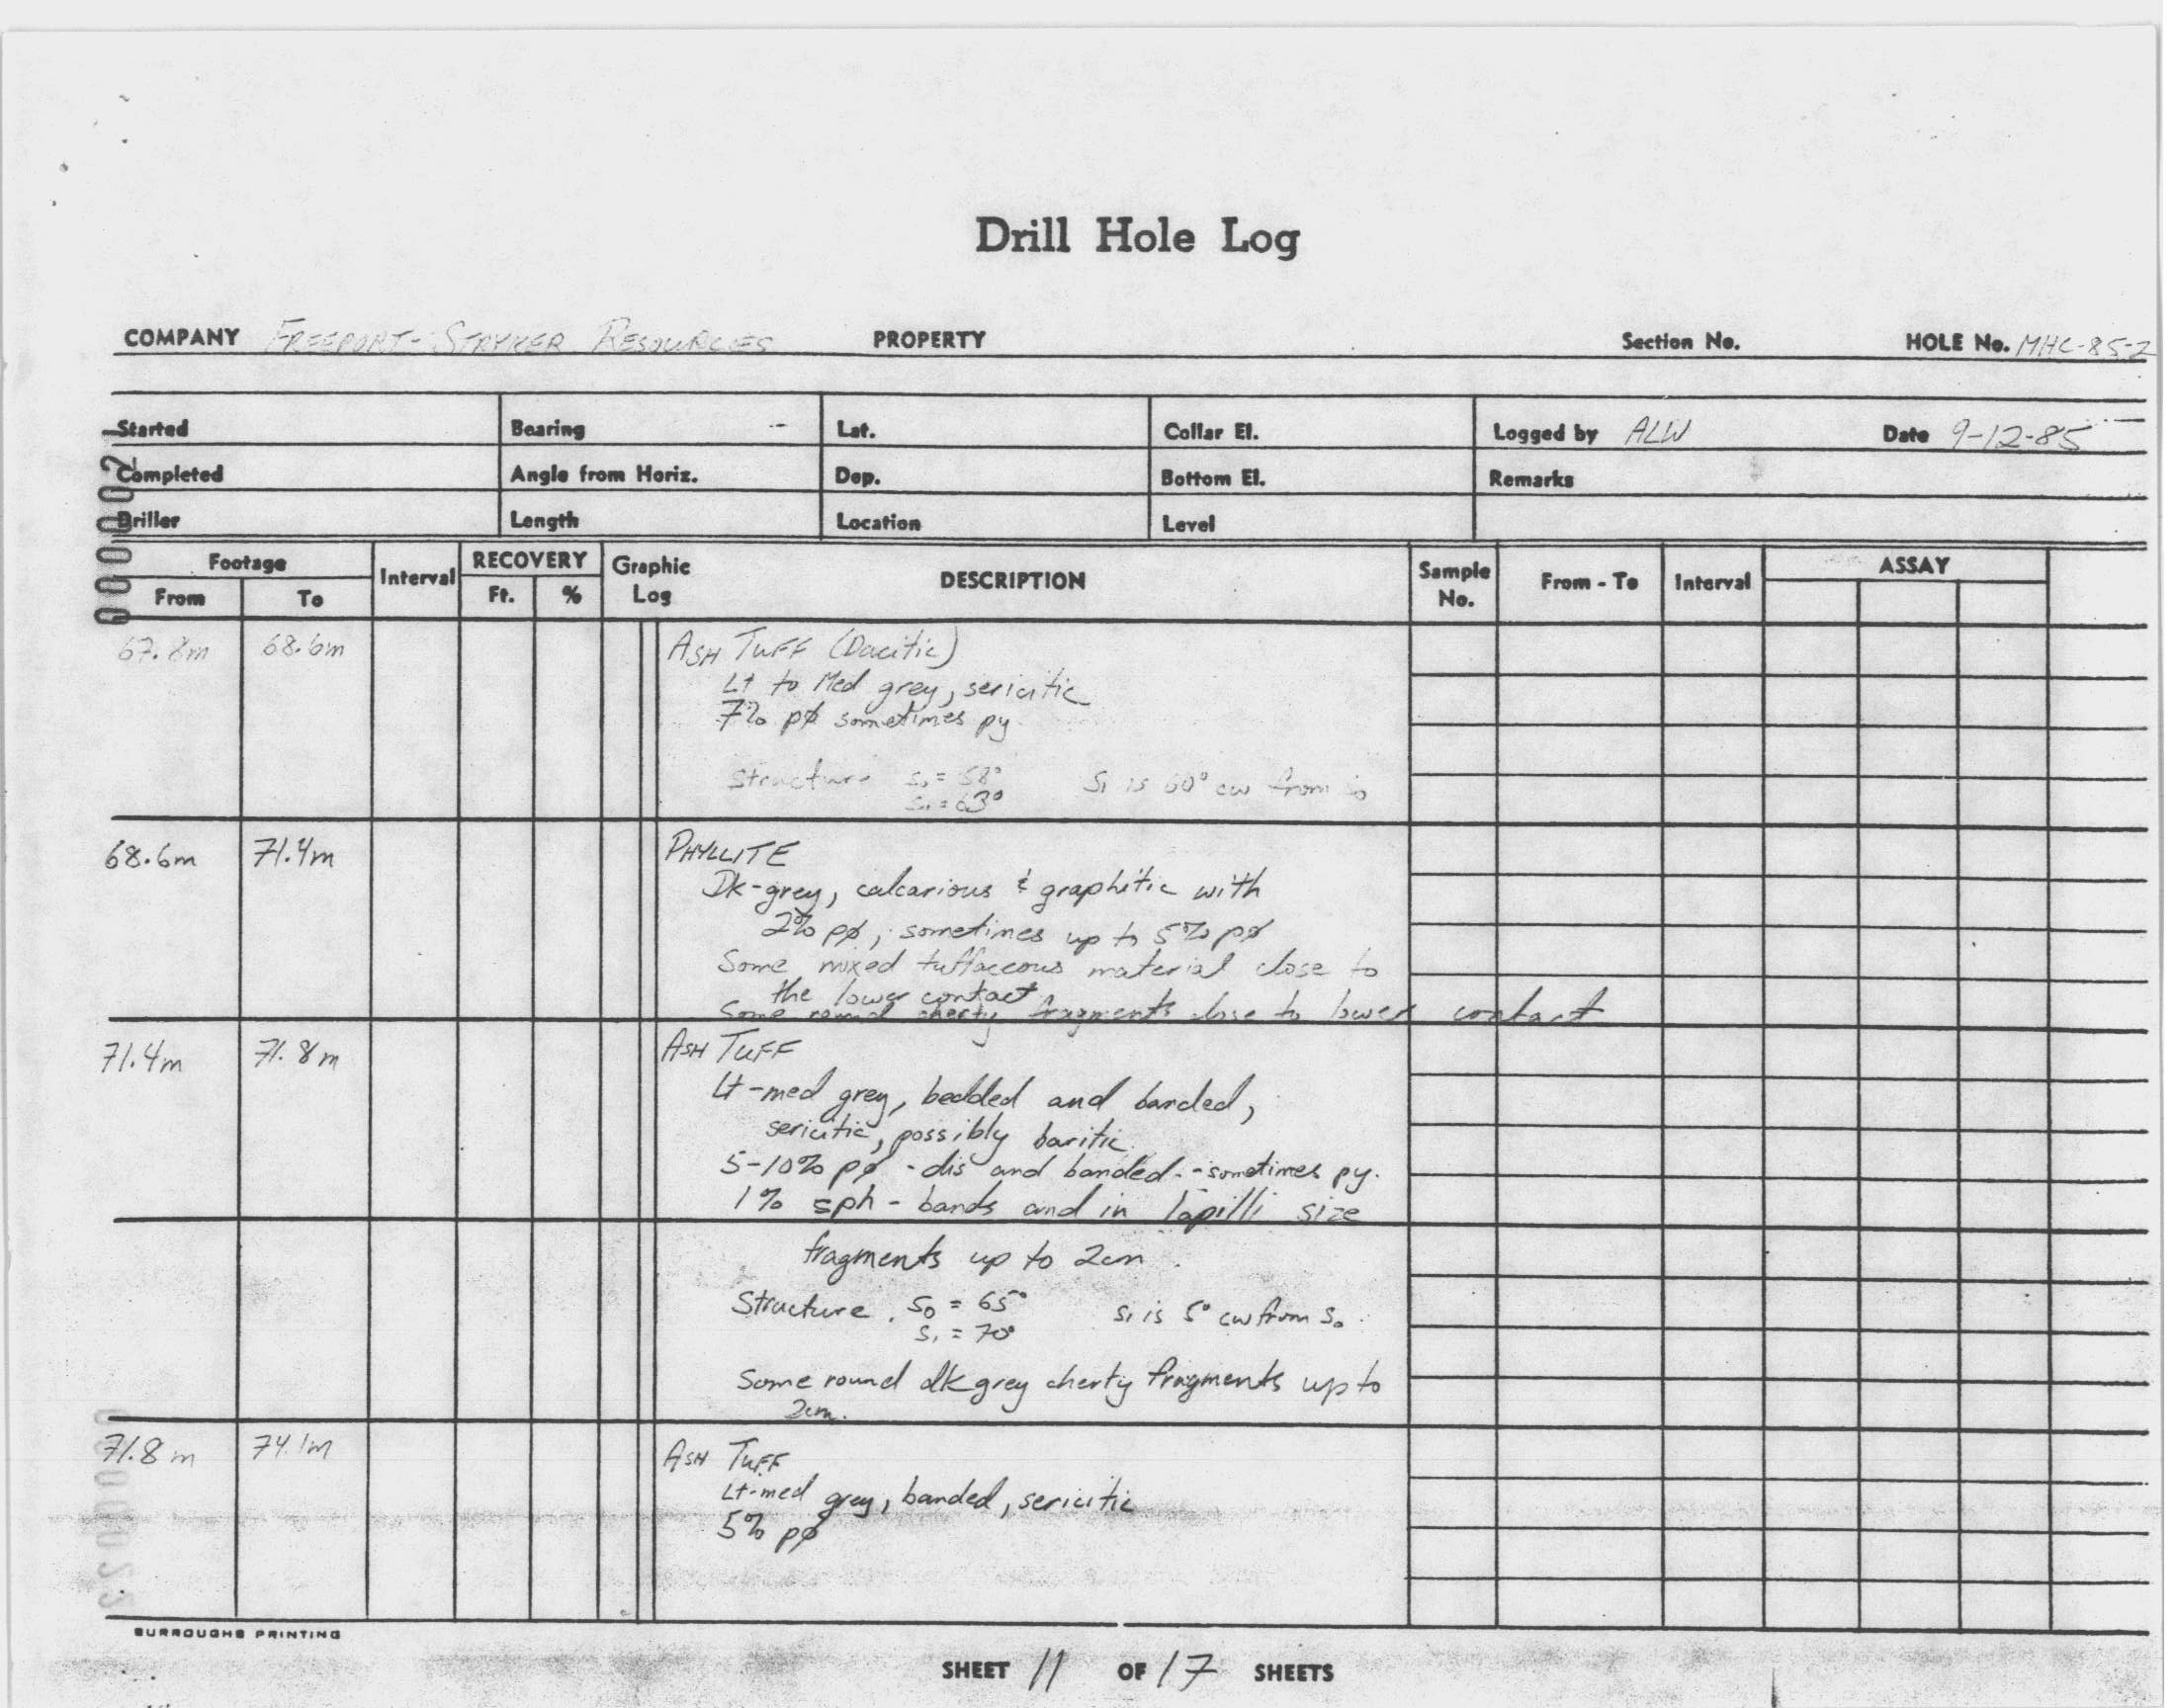 Drill Hole Log
COMPANY FREEPORT-STRYKER RESOURCES PROPERTY Section No. HOLE No. MHC-85-2
Started Bearing Lat. Collar El. Logged by ALW Date 9-12-85
Completed Angle from Horiz. Dep. Bottom El. Remarks
Driller Length Location Level
Footage Interval RECOVERY Graphic Log DESCRIPTION Sample No. From - To Interval ASSAY
From To Ft. %
67.8m 68.6m ASH TUFF (Dacitic)
Lt to Med grey, sericitic
7% pø sometimes py
Structure S₀ = 58° S₁ is 60° cw from S₀
S₁ = 63°
68.6m 71.4m PHYLLITE
Dk-grey, calcarious & graphitic with
2% pø, sometimes up to 5% pø
Some mixed tuffaceous material close to
the lower contact
Some round cherty fragments close to lower contact
71.4m 71.8m ASH TUFF
Lt-med grey, bedded and banded,
sericitic, possibly baritic.
5-10% pø - dis and banded - sometimes py.
1% sph - bands and in lapilli size
fragments up to 2cm.
Structure. S₀ = 65° S₁ is 5° cw from S₀.
S₁ = 70°
Some round dk grey cherty fragments up to
2cm.
71.8m 74.1m ASH TUFF
Lt-med grey, banded, sericitic
5% pø
BURROUGHS PRINTING
SHEET 11 OF 17 SHEETS